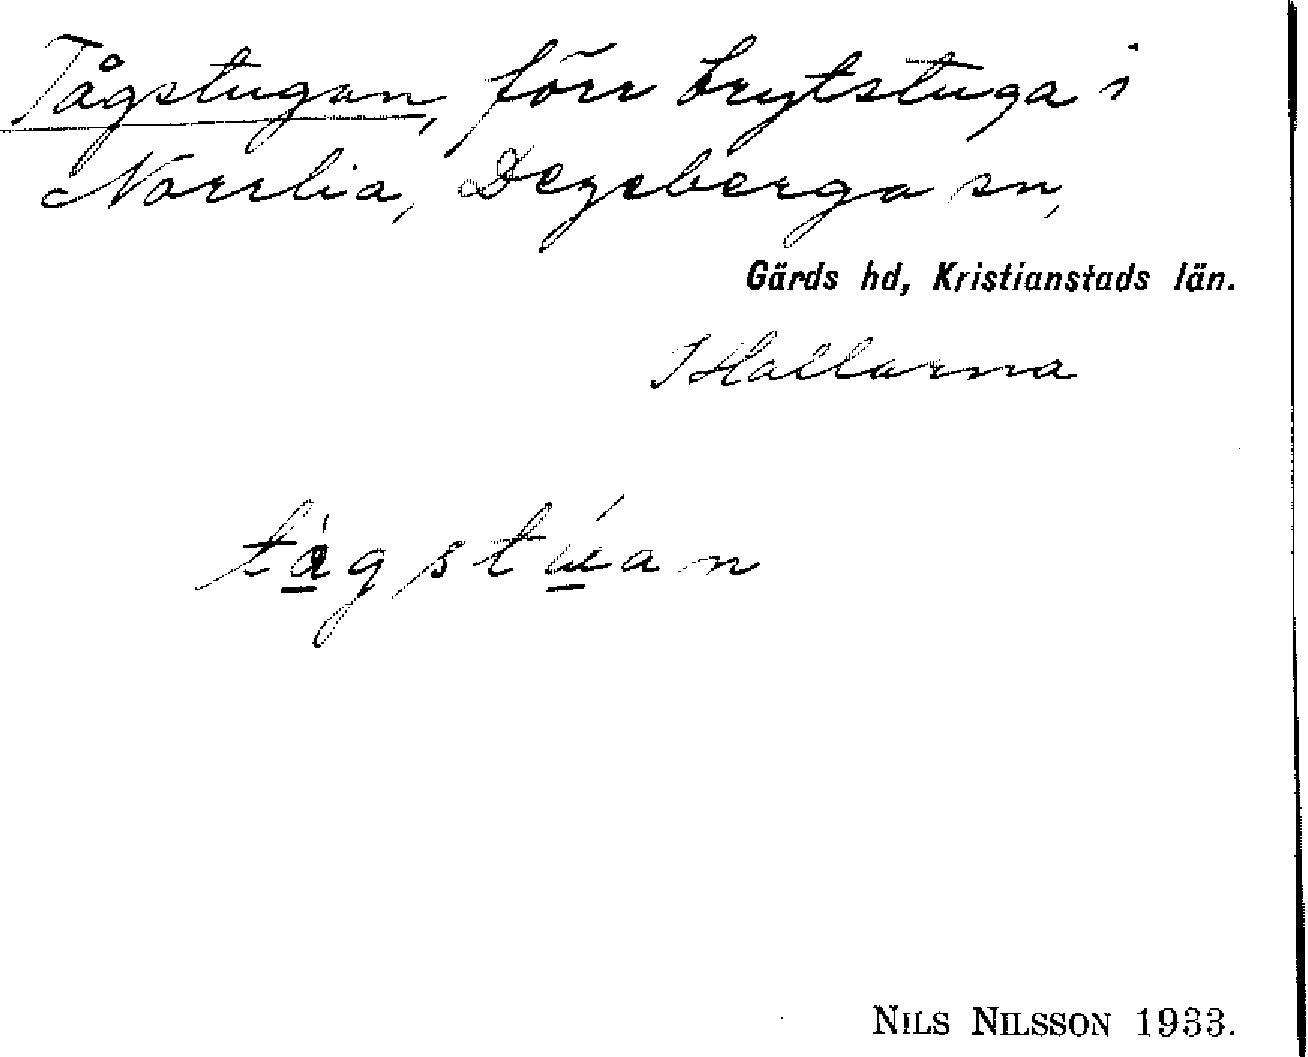 Tågstugan, förr brytstuga i
Norrlia, Degeberga sn,
Gärds hd, Kristianstads län.
I Hallarna
tågstúan
NILS NILSSON 1933.